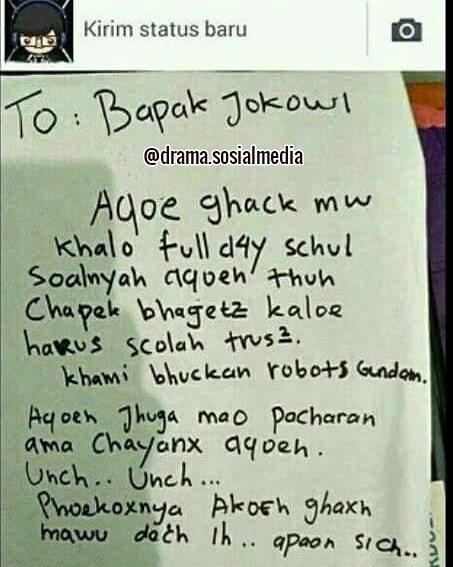 Kirim status baru
To : Bapak Jokowi
@drama.sosialmedia
Aqoe ghack mw
khalo full d4y schul
Soalnyah aqoeh thuh
Chapek bhagetz kaloe
harus scolah trus².
khami bhuckan robots Gundam.
Aqoeh Jhuga mao pacharan
ama Chayanx aqoeh.
Unch.. Unch...
Phoekoxnya Akoeh ghaxh
mawu dech ih.. apaan sich..